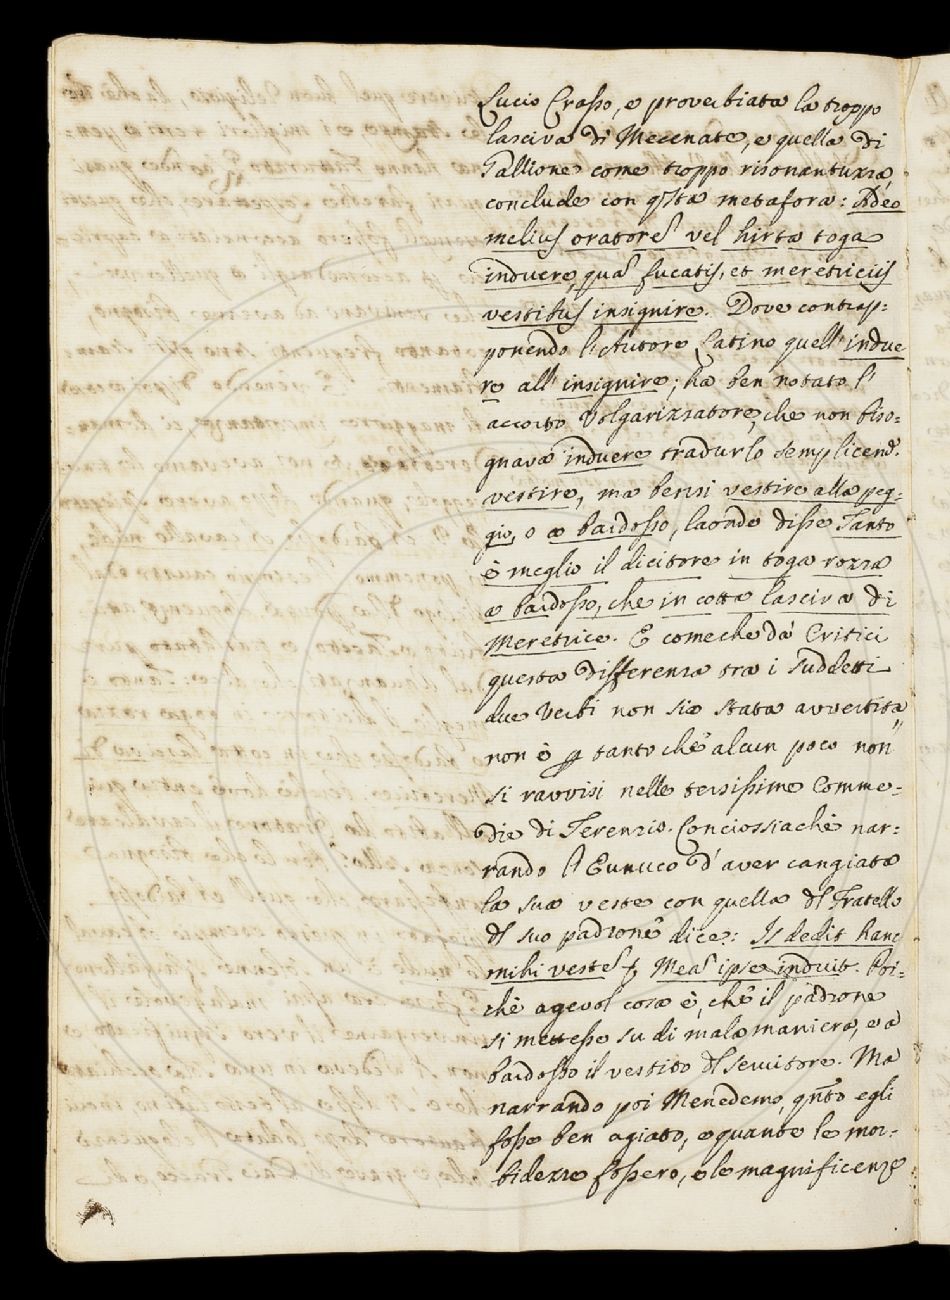 Lucio Crasso, e proverbiata la troppo
lasciva di Mecenate, e quella di
Gallione come troppo risonantuzza,
conclude con q.sta metafora: Adeo
melius oratorẽ vel hirta toga
induere, quã fucatis, et meretriciis
vestibus insignire. Dove contrap:
ponendo l'Autore Latino quell'indue
re all'insignire; ha ben notato l'
accorto Volgarizzatore, che non biso:
gnava induere tradurlo semplicem.
vestire, ma bensi vestire alla peg:
gio, o a bardosso, laonde disse Tanto
è meglio il dicitore in toga rozza
a bardosso, che in cotta lasciva di
Meretrice. E comeche da' Critici
questa differenza tra i suddetti
due Verbi non sia stata avvertita
non è p tanto che alcun poco non
si ravvisi nelle tersissime Comme:
die di Terenzio. Conciossiachè nar:
rando l'Eunuco d'aver cangiata
la sua veste con quella dl Fratello
dl suo padrone dice: Is dedit hanc
mihi vestẽ, Meã ipse induit. Poi:
chè agevol cosa è, che il padrone
si mettesse su di mala maniera, e a
bardosso il vestito dl servitore. Ma
narrando poi Menedemo, qn̄to egli
fosse ben agiato, e quante le mor:
bidezze fossero, e le magnificenze